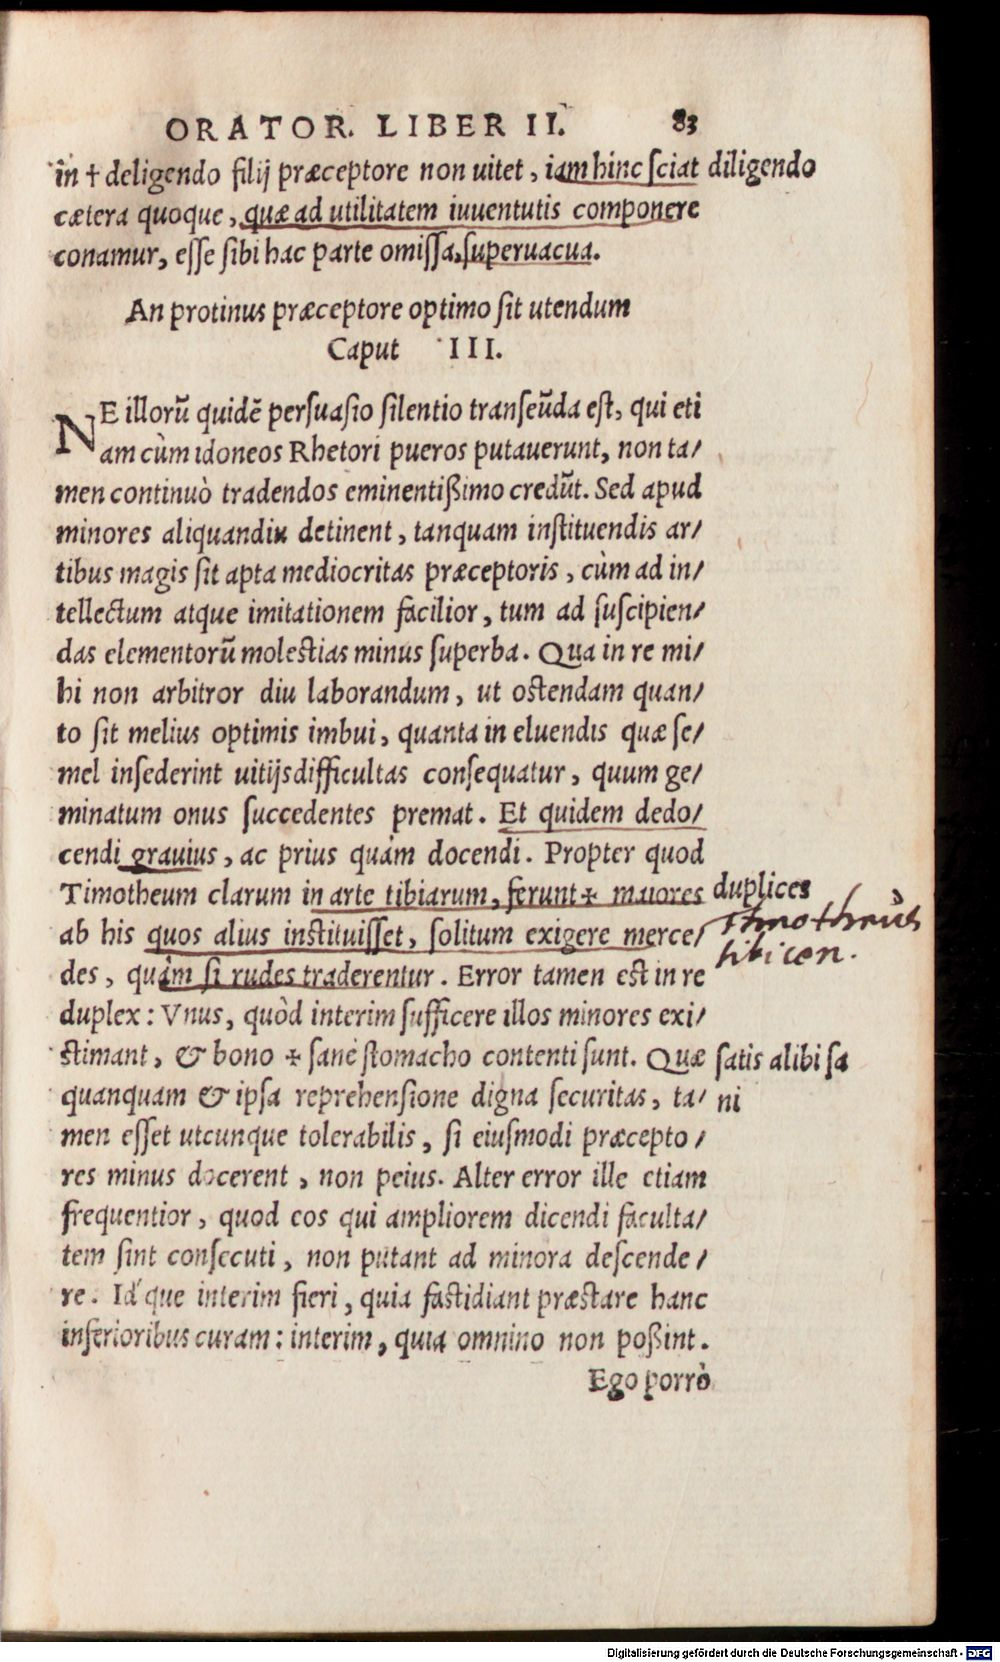 ORATOR. LIBER II. 83
in † deligendo filij præceptore non uitet, iam hinc sciat diligendo
cætera quoque, quæ ad utilitatem iuuentutis componere
conamur, esse sibi hac parte omissa, superuacua.
An protinus præceptore optimo sit utendum
Caput III.
NE illorū quidē persuasio silentio transeūda est, qui eti
am cùm idoneos Rhetori pueros putauerunt, non ta/
men continuò tradendos eminentißimo credūt. Sed apud
minores aliquandiu detinent, tanquam instituendis ar/
tibus magis sit apta mediocritas præceptoris, cùm ad in/
tellectum atque imitationem facilior, tum ad suscipien/
das elementorū molestias minus superba. Qua in re mi/
hi non arbitror diu laborandum, ut ostendam quan/
to sit melius optimis imbui, quanta in eluendis quæ se/
mel insederint uitijs difficultas consequatur, quum ge/
minatum onus succedentes premat. Et quidem dedo/
cendi grauius, ac prius quàm docendi. Propter quod
Timotheum clarum in arte tibiarum, ferunt ✢ maiores duplices
ab his quos alius instituisset, solitum exigere merce/ Timotheus
tibicen.
des, quàm si rudes traderentur. Error tamen est in re
duplex: Vnus, quòd interim sufficere illos minores exi/
stimant, & bono ✢ sanè stomacho contenti sunt. Quæ satis alibi sa
quanquam & ipsa reprehensione digna securitas, ta/ ni
men esset utcunque tolerabilis, si eiusmodi præcepto/
res minus docerent, non peius. Alter error ille etiam
frequentior, quod eos qui ampliorem dicendi faculta/
tem sint consecuti, non putant ad minora descende/
re. Id que interim fieri, quia fastidiant præstare hanc
inferioribus curam: interim, quia omnino non poßint.
Ego porrò
Digitalisierung gefördert durch die Deutsche Forschungsgemeinschaft - DFG